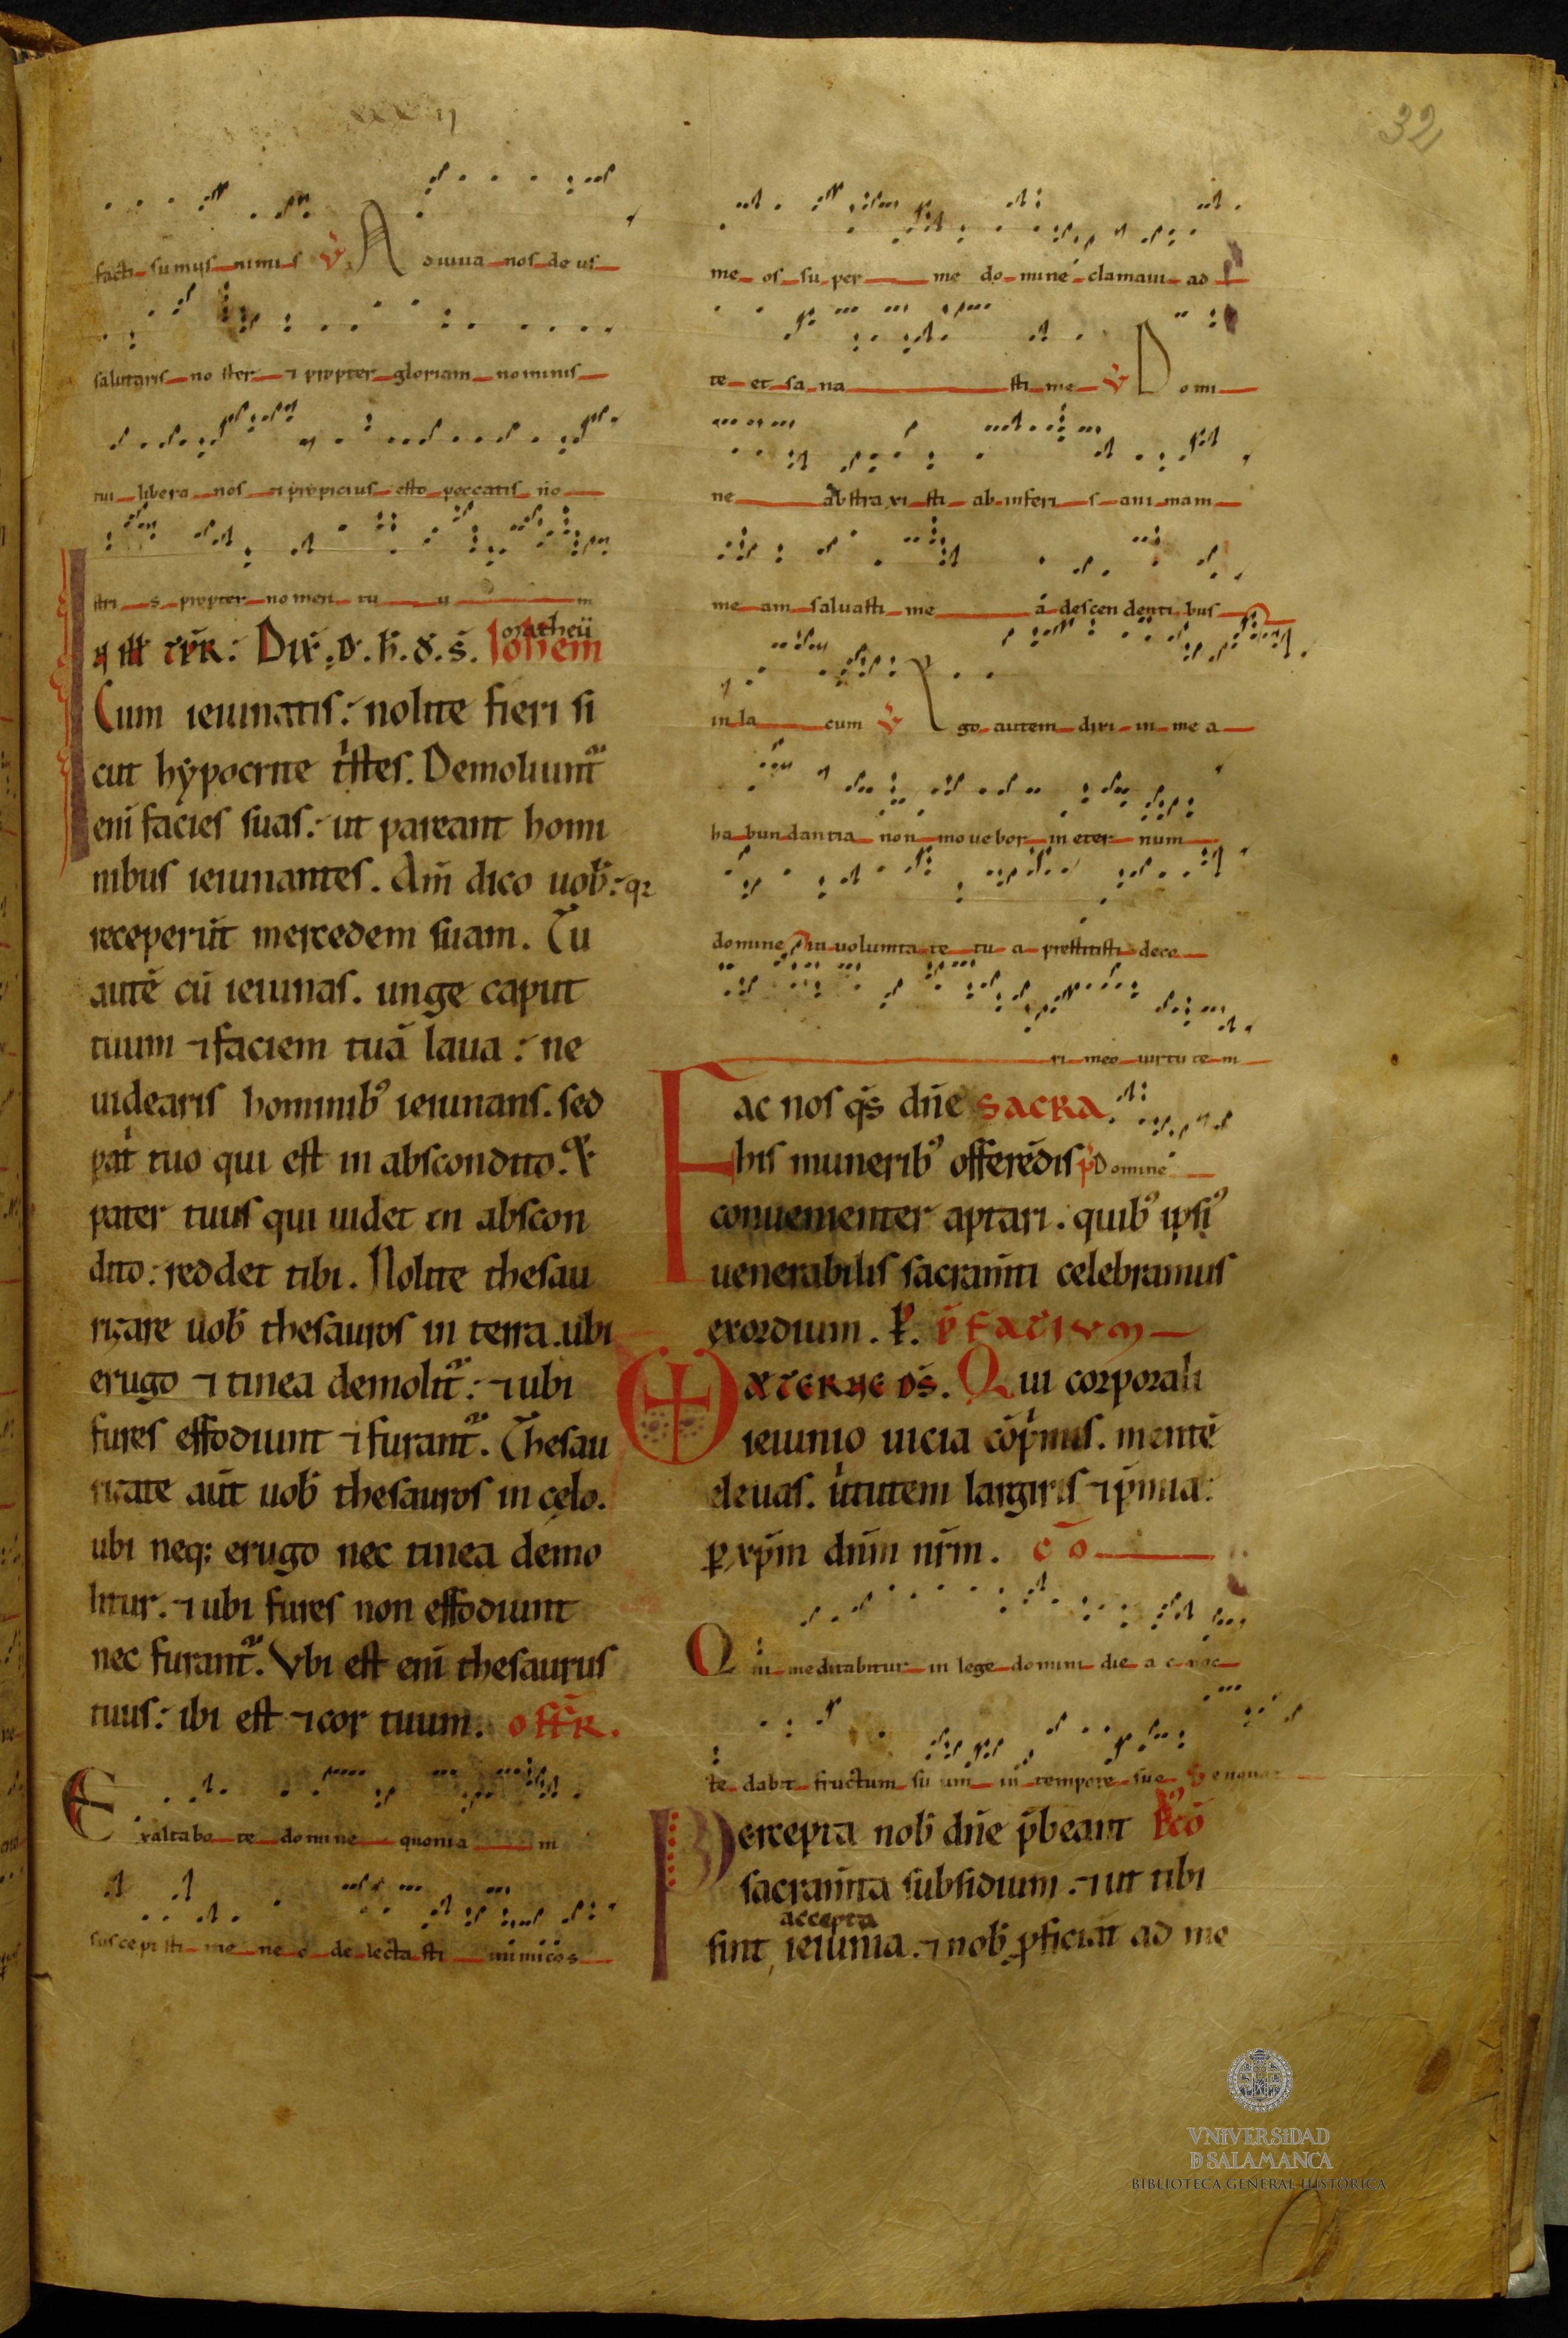 xxxii
32
facti sumus nimis v̄. Adiuua nos deus
salutaris noster ⁊ propter gloriam nominis
tui libera nos ⁊ propicius esto peccatis no
stri s propter nomen tu u m
matheū
IN ill̄ tp̄r: Dix̄. d̄. ih̄. d̄. s̄. Ioh̄em
Cum ieiunatis: nolite fieri si
cut hypocrite tⁱstes. Demoliunt᷑
eni᷑ facies suas: ut pareant homi
nibus ieiunantes. Am̄ dico uob̄: q2
receperūt mercedem suam. Tu
autē cū ieiunas. unge caput
tuum ⁊ faciem tuā laua: ne
uidearis hominib᷒ ieiunans. sed
patⁱ tuo qui est in abscondito. Et
pater tuus qui uidet in abscon
dito: reddet tibi. Nolite thesau
rizare uob̄ thesauros in terra. ubi
erugo ⁊ tinea demolit᷑: ⁊ ubi
fures effodiunt ⁊ furant᷑. Thesau
rizate aūt uob̄ thesauros in cęlo.
ubi neq; erugo nec tinea demo
litur. ⁊ ubi fures non effodiunt
nec furant᷑. Vbi est enī thesaurus
tuus: ibi est ⁊ cor tuum. offr̄.
Exaltabo te domine quonia m
suscepisti me nec delectasti inimicos
me os super me domine clamaui ad
te et sana sti me v̄ Domi
ne abstraxisti ab inferi s animam
me am saluasti me á descendentibus
in la cum v̄ Ego autem dixi in mea
habundantia non mouebor in eternum
domine in uoluntate tu a prestitisti deco
ri meo uirtute m
Fac nos q̄s dn̄e sacra
his munerib᷒ offerēdis p̄ Domine
conuenienter aptari. quib᷒ ipsi᷒
uenerabilis sacram̄ti celebramus
exordium. P̄. p̄fatium
Aeterne ds̄. Qui corporali
ieiunio uicia cōpⁱmis. mentē
eleuas. uⁱtutem largiris ⁊ p̄mia:
ꝑ xp̄m dn̄m nr̄m. cō
Qui meditabitur in lege domini die a c noc
te dabit fructum su um in tempore suo
Percepta nob̄ dn̄e p̄beant P᷒cō
sacram̄ta subsidium. ⁊ ut tibi
accepta
sint, ieiunia. ⁊ nob̄ ꝓficiāt ad me
VNiVERSiDAD
D SALAMANCA
BIBLIOTECA GENERAL HISTÓRICA